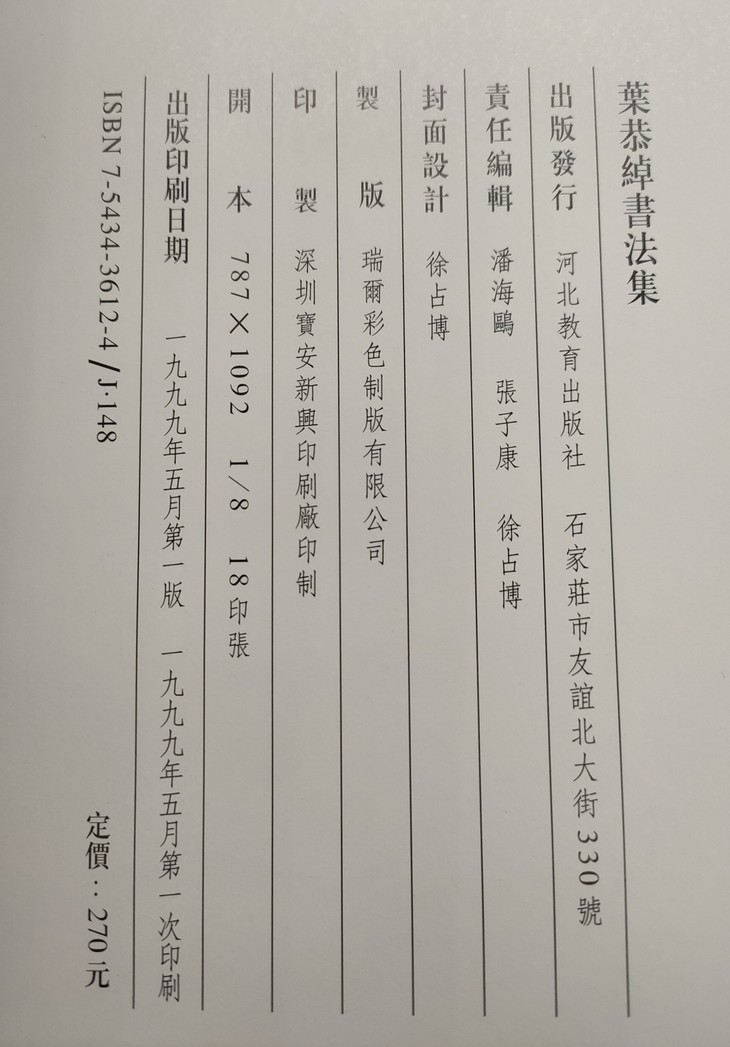 葉恭綽書法集
出版發行 河北教育出版社 石家莊市友誼北大街330號
責任編輯 潘海鷗 張子康 徐占博
封面設計 徐占博
製版 瑞爾彩色制版有限公司
印製 深圳寶安新興印刷廠印制
開本 787×1092 1/8 18印張
出版印刷日期 一九九九年五月第一版 一九九九年五月第一次印刷
ISBN 7-5434-3612-4/J·148
定價：270元